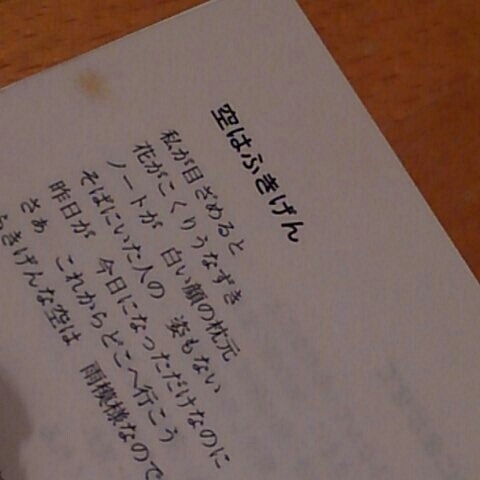 空はふきげん
私が目ざめると
花がこくりうなずき
ノートが 白い顔の枕元
そばにいた人の 姿もない
昨日が 今日になっただけなのに
さぁ これからどこへ行こう
ふきげんな空は 雨模様なので